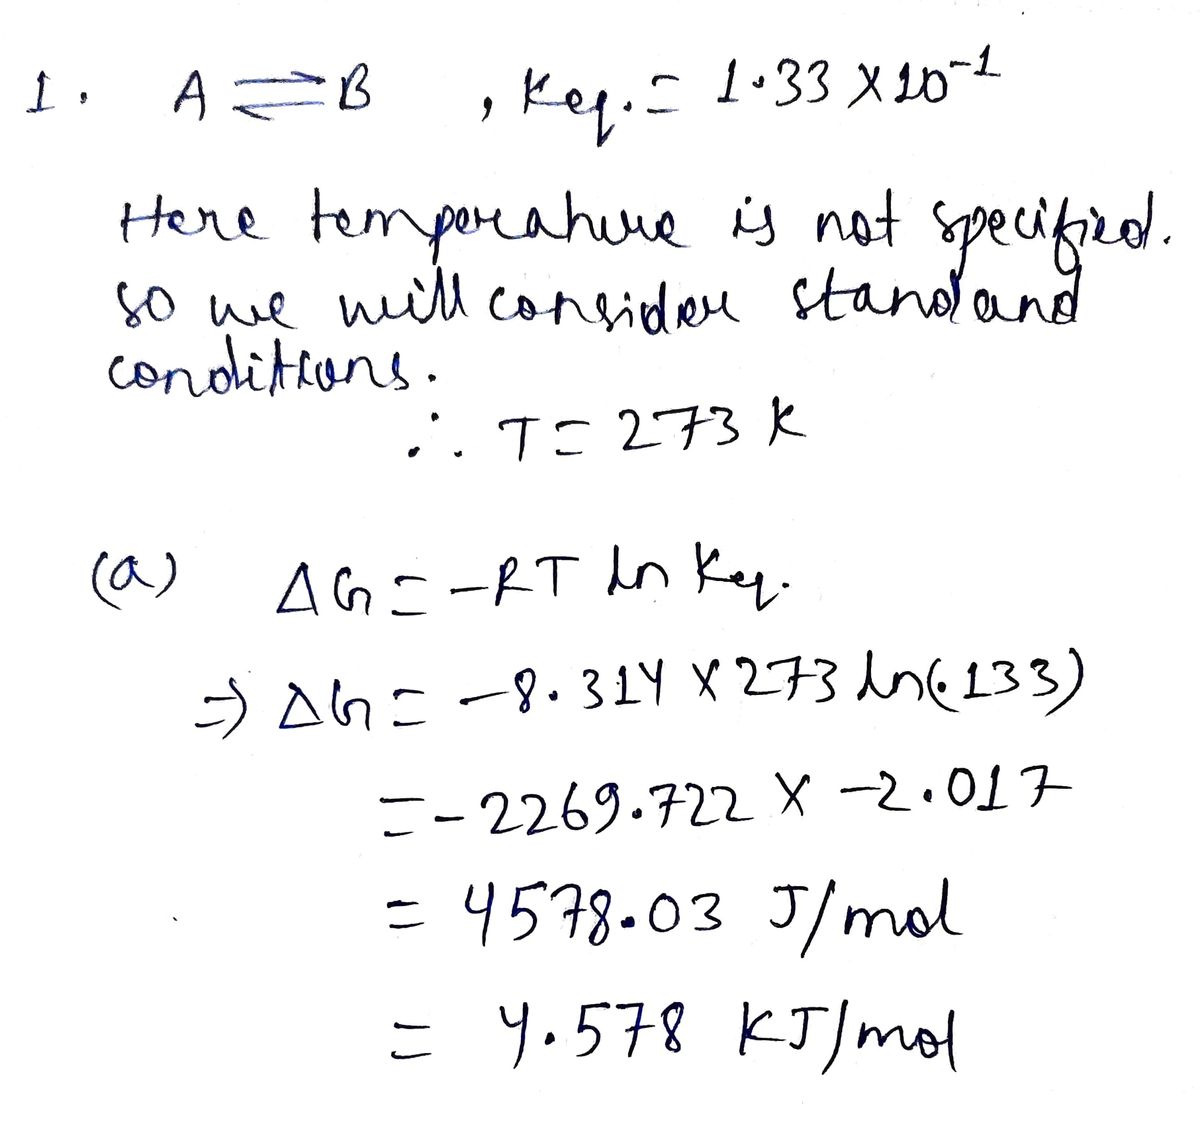 1. A ⇌ B , Keq. = 1.33 X 10⁻¹
Here temperature is not specified.
so we will consider standand
conditions.
∴ T = 273 K
(a) ΔG = -RT ln Keq.
⇒ ΔG = -8.314 X 273 ln(.133)
= -2269.722 X -2.017
= 4578.03 J/mol
= 4.578 KJ/mol